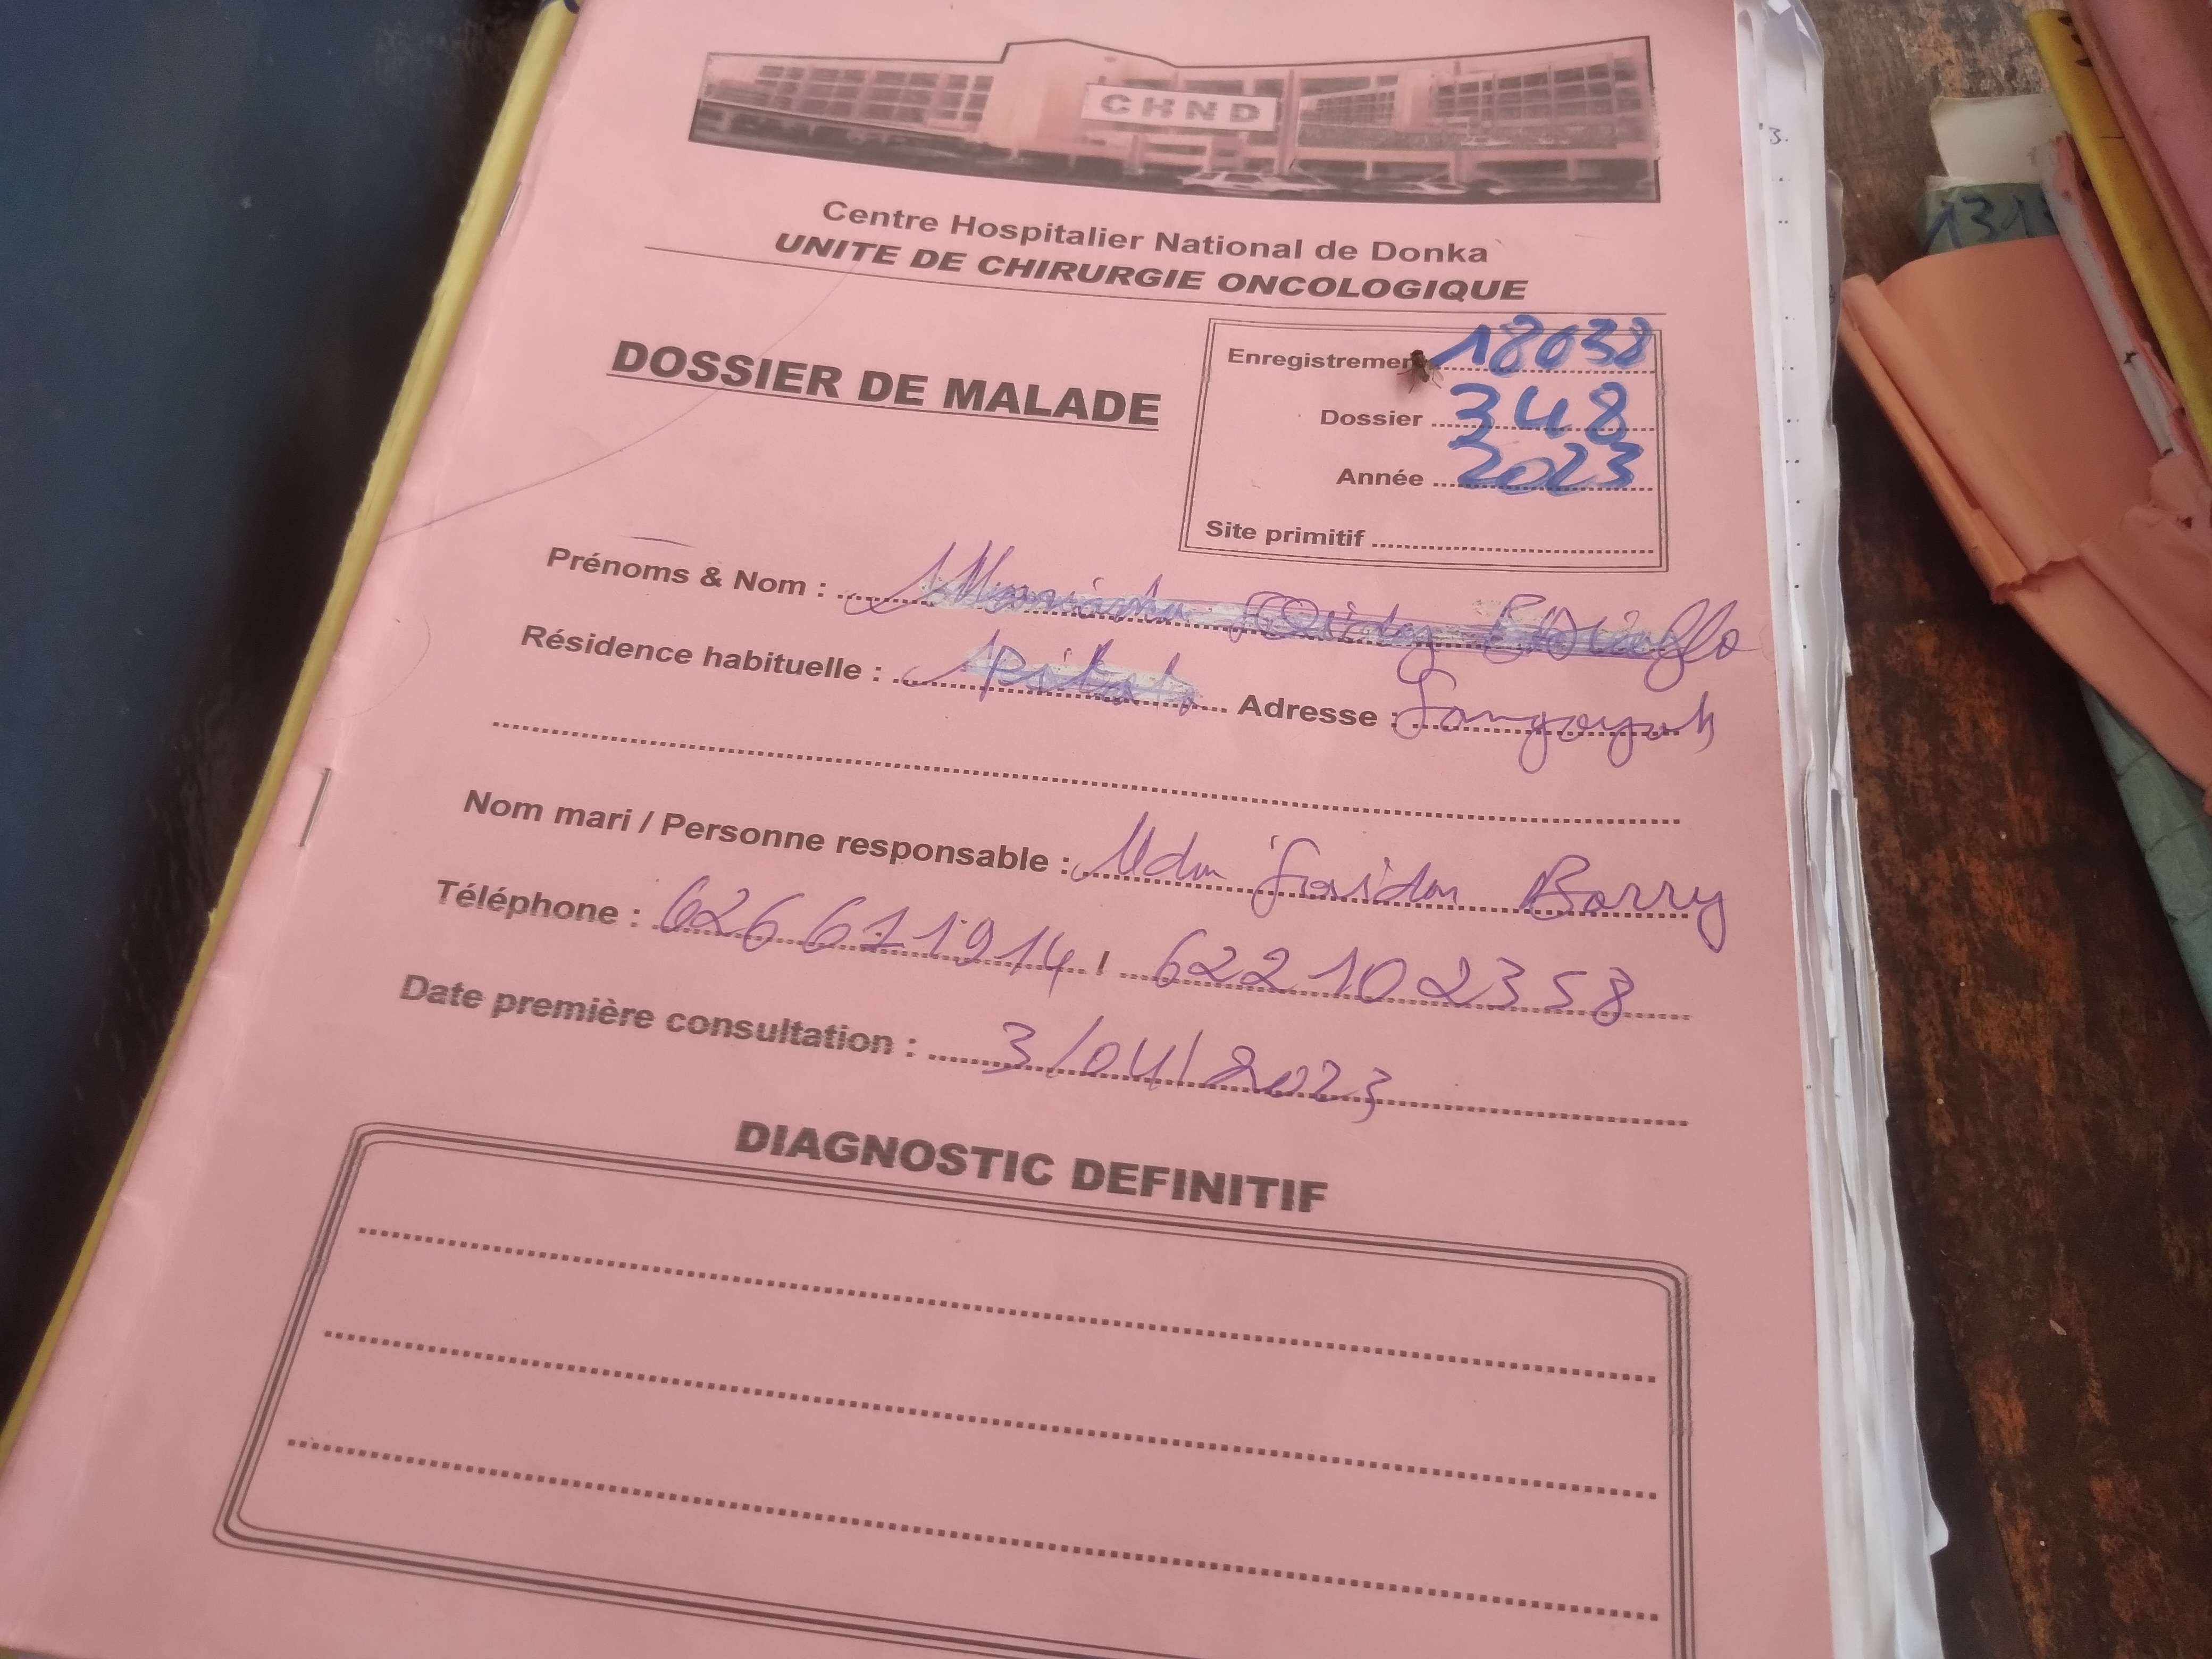 CHND
Centre Hospitalier National de Donka
UNITE DE CHIRURGIE ONCOLOGIQUE
DOSSIER DE MALADE
Enregistrement 18038
Dossier 348
Année 2023
Site primitif
Prénoms & Nom : Diallo
Résidence habituelle : Adresse : Sangoyah
Nom mari / Personne responsable : Barry
Téléphone : 626 611914 / 622102358
Date première consultation : 3/04/2023
DIAGNOSTIC DEFINITIF